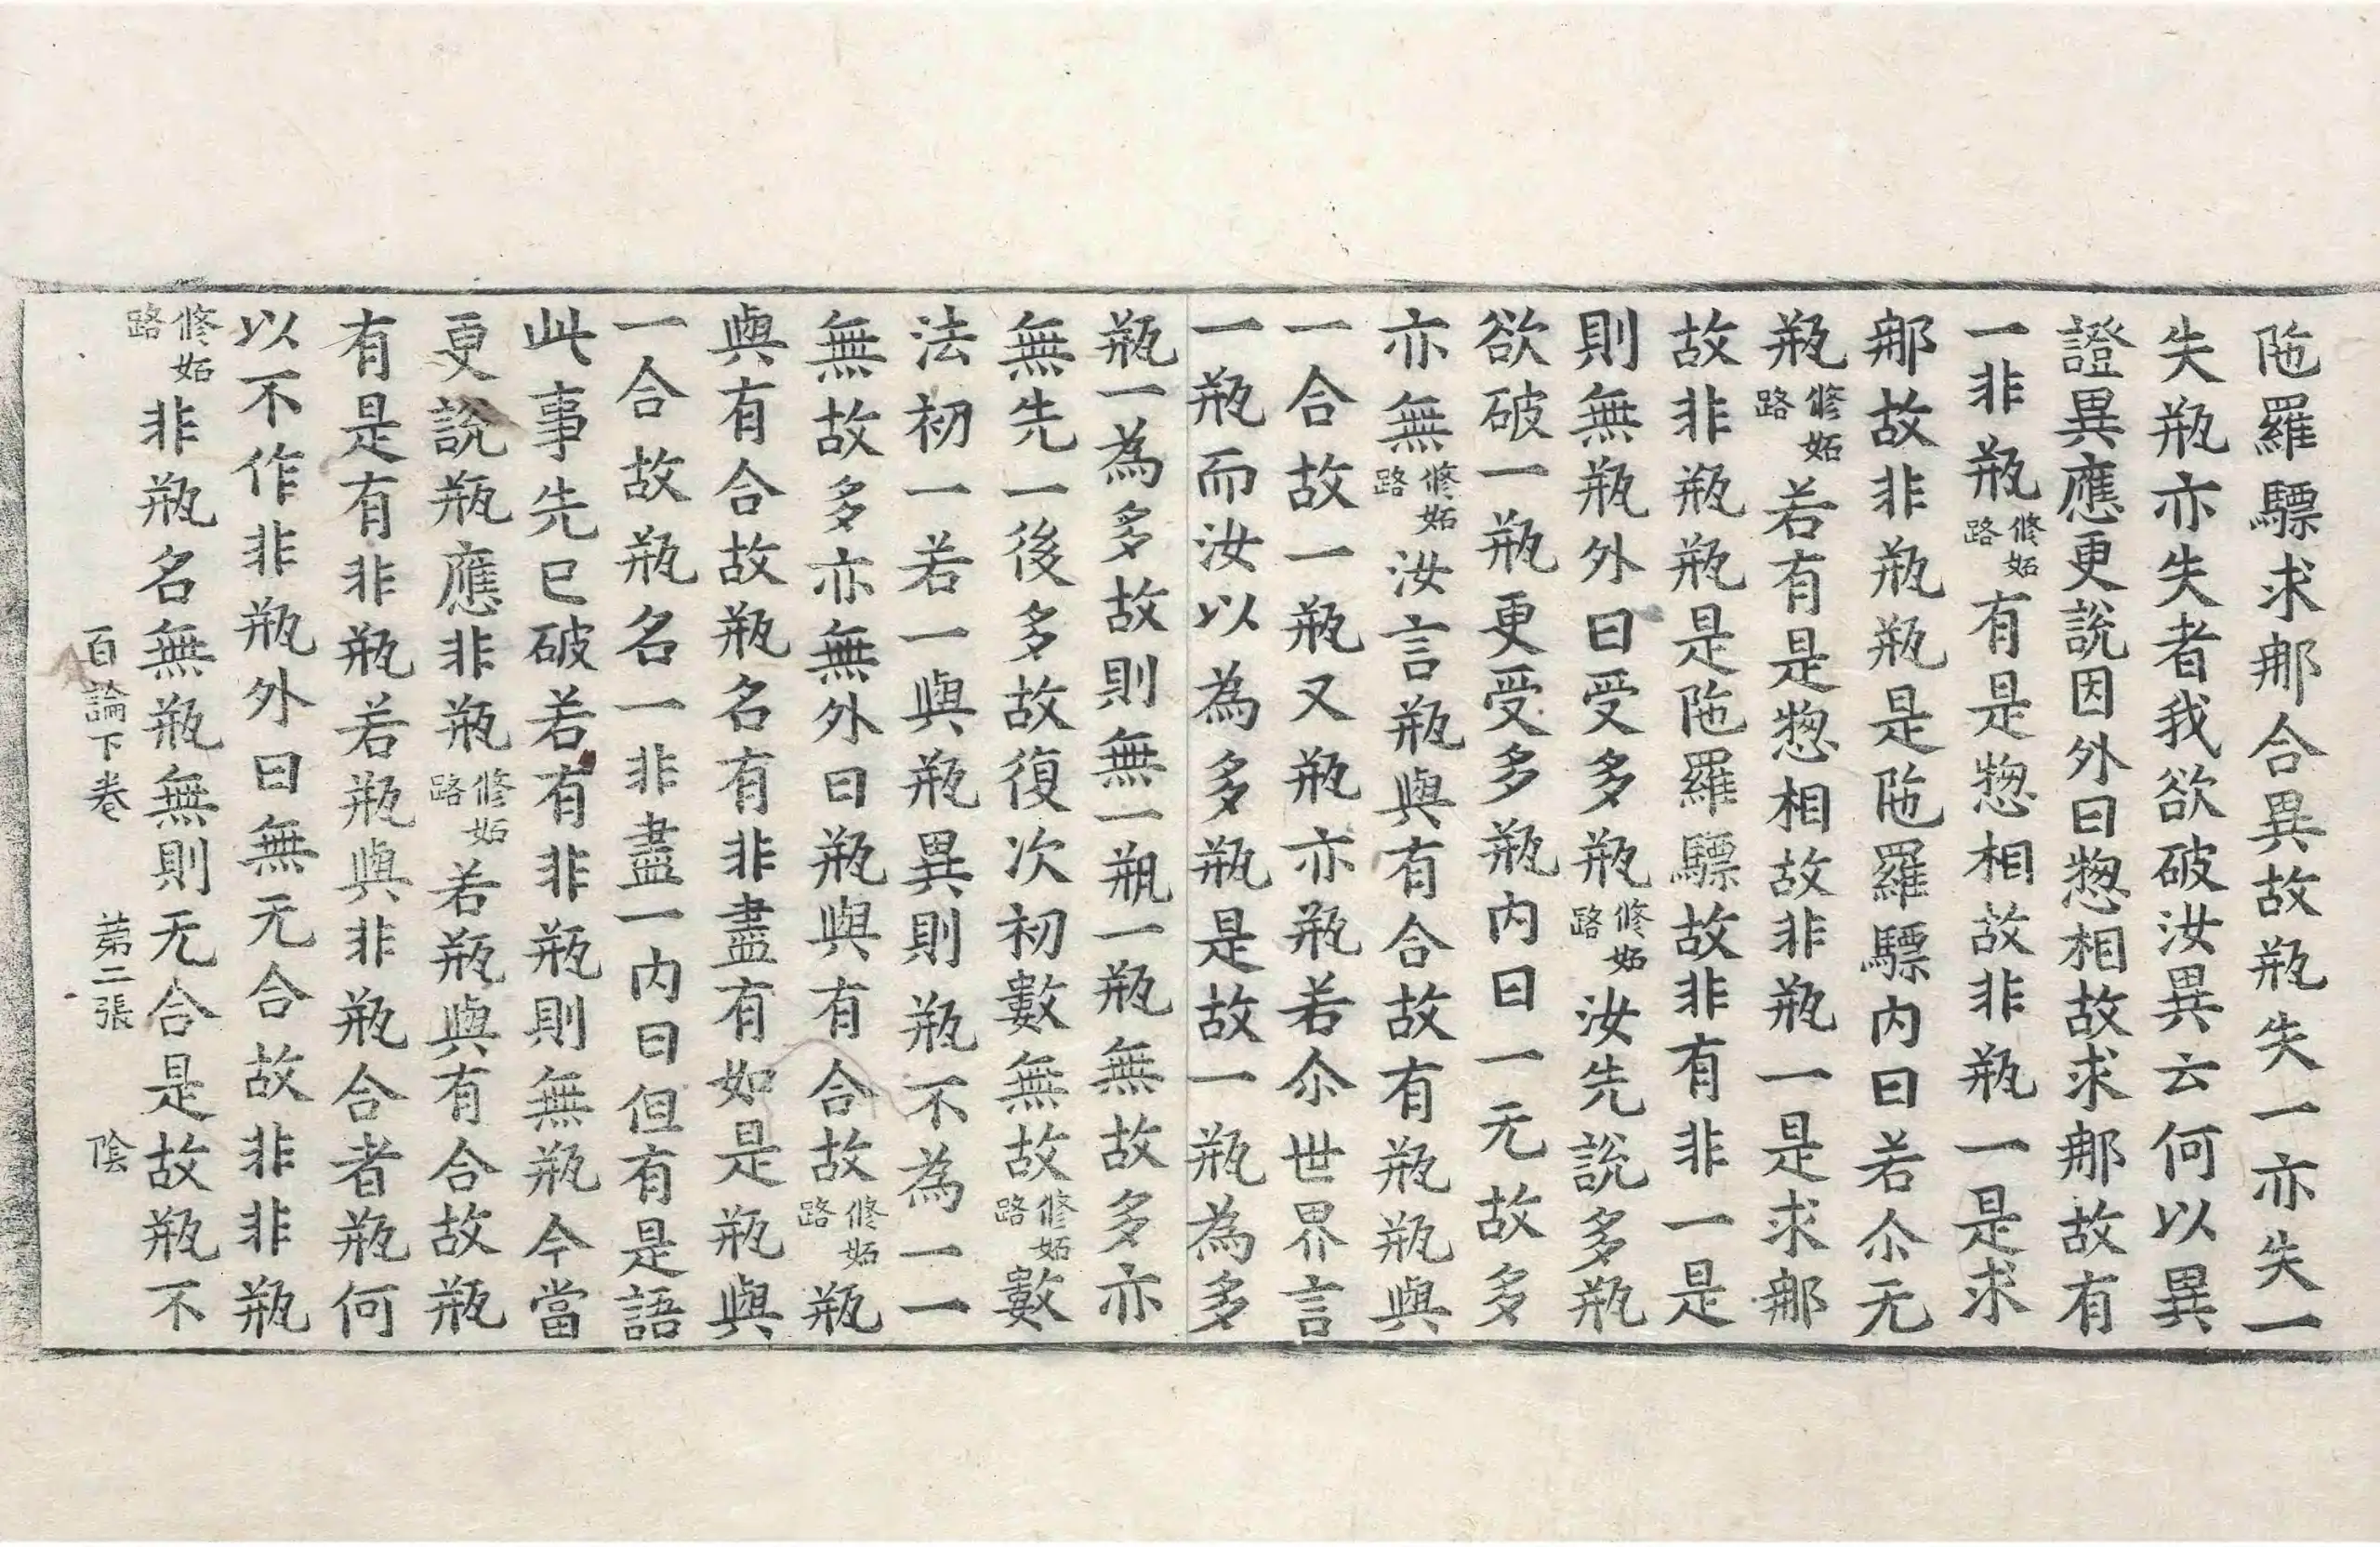 陁羅驃求那合異故瓶失一亦失一
失瓶亦失者我欲破汝異云何以異
證異應更説因外曰惣相故求那故有
一非瓶修妬路有是惣相故非瓶一是求
那故非瓶瓶是陁羅驃内曰若尒无
瓶修妬路若有是惣相故非瓶一是求那
故非瓶瓶是陁羅驃故非有非一是
則無瓶外曰受多瓶修妬路汝先説多瓶
欲破一瓶更受多瓶内曰一无故多
亦無修妬路汝言瓶與有合故有瓶瓶與
一合故一瓶又瓶亦瓶若尒世界言
一瓶而汝以為多瓶是故一瓶為多
瓶一為多故則無一瓶一瓶無故多亦
無先一後多故復次初數無故修妬路數
法初一若一與瓶異則瓶不為一一
無故多亦無外曰瓶與有合故修妬路瓶
與有合故瓶名有非盡有如是瓶與
一合故瓶名一非盡一内曰但有是語
此事先已破若有非瓶則無瓶今當
更説瓶應非瓶修妬路若瓶與有合故瓶
有是有非瓶若瓶與非瓶合者瓶何
以不作非瓶外曰無无合故非非瓶
修妬路非瓶名無瓶無則无合是故瓶不
百論下卷 苐二張 陰